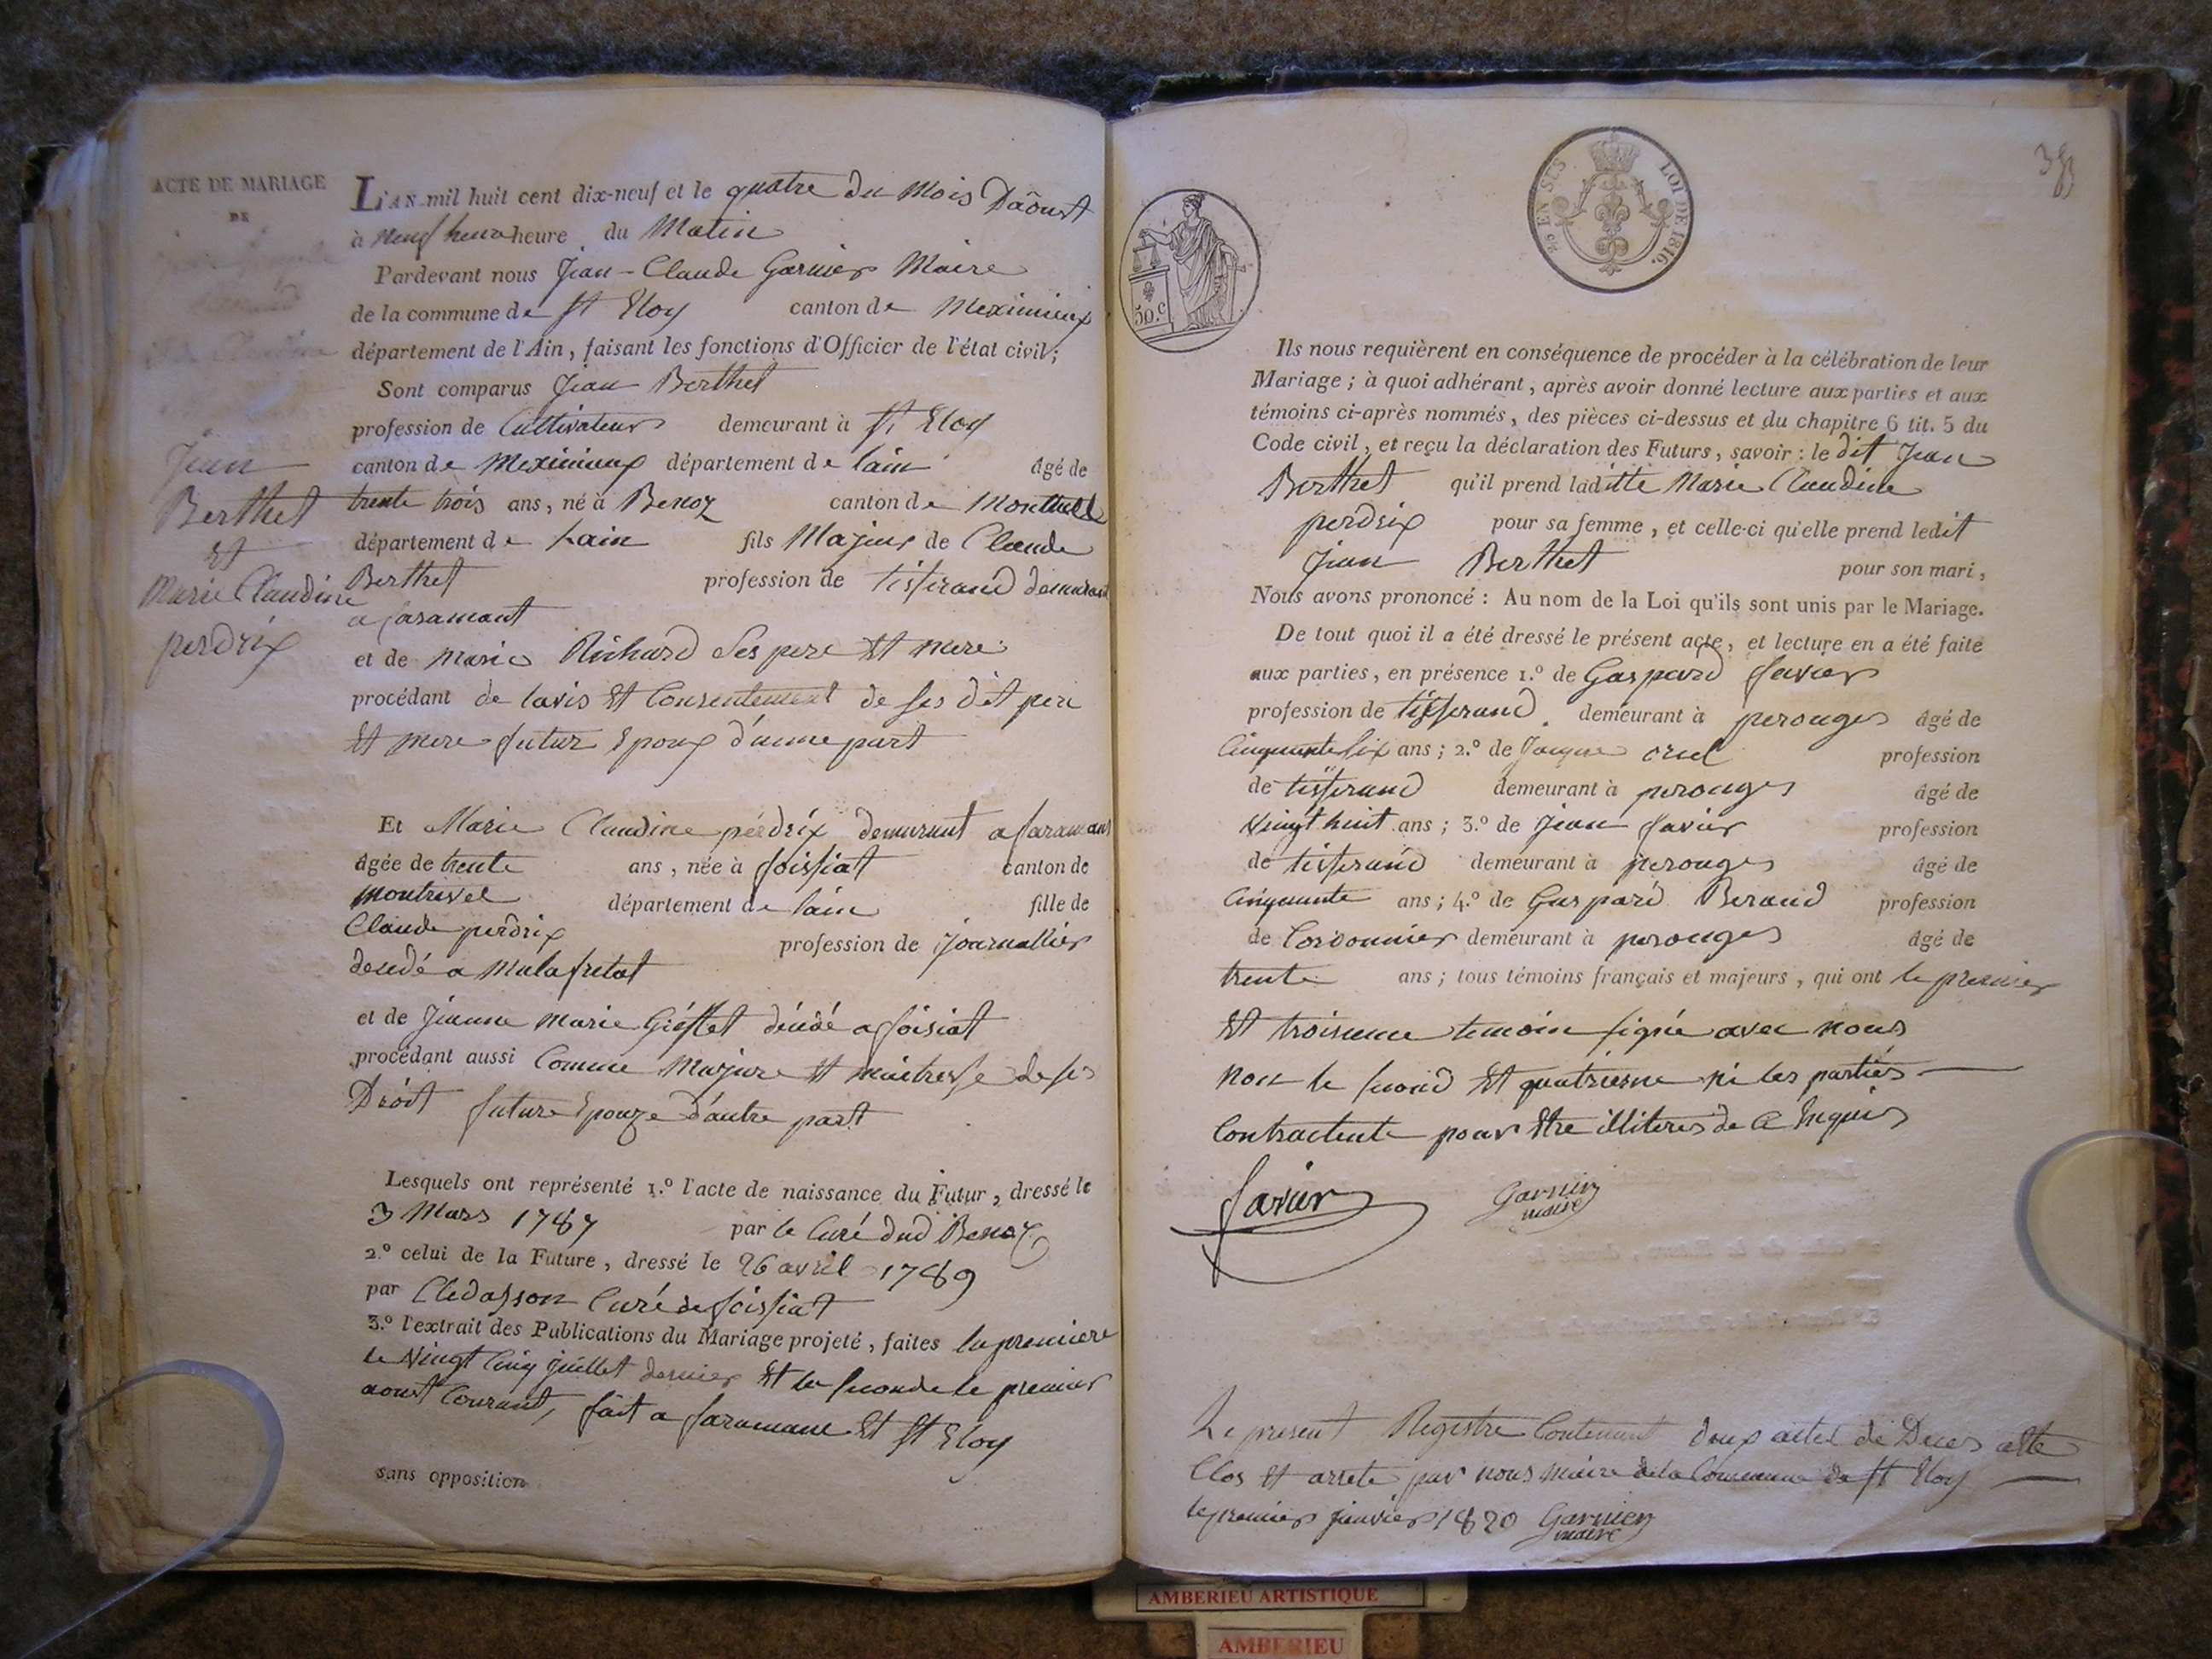 ACTE DE MARIAGE
DE
Jean
Berthet
et
Marie Claudine
perdrix
L'AN mil huit cent dix-neuf et le quatre du mois Dâoust
à neuf heure heure du Matin
Pardevant nous Jean-Claude Garnier Maire
de la commune de St Eloy canton de Meximieux
département de l'Ain, faisant les fonctions d'Officier de l'état civil;
Sont comparus Jean Berthet
profession de Cultivateur demeurant à St Eloy
canton de Meximieux département de lain âgé de
trente trois ans, né à Benoz canton de Montluel
département de Lain fils Majeur de Claude
Berthet profession de tisserand demeurant
a faramant
et de Marie Richard Ses pere Et mere
procédant de lavis Et Consentement de ses dit pere
Et mere futur Epoux d'une part
Et Marie Claudine pérdrix demurant a faramans
âgée de trente ans, née à foissiat canton de
montrevel département de lain fille de
Claude perdrix profession de journallier
decedé a Malafretat
et de Jeanne Marie décédé a foisiat
procédant aussi Comme Majure et maitresse de ses
Dróit future Epouze d'autre part
Lesquels ont représenté 1.º l'acte de naissance du Futur, dressé le
3 Mars 1787 par le Curé dud Benoz
2.º celui de la Future, dressé le 26 avril 1789
par Curé de foissiat
3.º l'extrait des Publications du Mariage projeté, faites la premiere
le Vingt Cinq juillet dernier Et la seconde le premier
aoust Courant, fait a faramane Et St Eloy
sans opposition
EN SUS
LOI DE 1816.
30.c
Ils nous requièrent en conséquence de procéder à la célébration de leur
Mariage; à quoi adhérant, après avoir donné lecture aux parties et aux
témoins ci-après nommés, des pièces ci-dessus et du chapitre 6 tit. 5 du
Code civil, et reçu la déclaration des Futurs, savoir: le dit Jean
Berthet qu'il prend laditte Marie Claudine
perdrix pour sa femme, et celle-ci qu'elle prend ledit
Jean Berthet pour son mari,
Nous avons prononcé: Au nom de la Loi qu'ils sont unis par le Mariage.
De tout quoi il a été dressé le présent acte, et lecture en a été faite
aux parties, en présence 1.º de Gaspard favier
profession de tisserand demeurant à perouges âgé de
Cinquante six ans; 2.º de Jacque profession
de tisserand demeurant à perouges âgé de
Vingt huit ans; 3.º de Jean favier profession
de tisserand demeurant à perouges âgé de
Cinquante ans; 4.º de Gaspard Beraud profession
de Cordonnier demeurant à perouges âgé de
trente ans; tous témoins français et majeurs, qui ont le premier
Et troisieme temoin signé avec nous
non le second Et quatrieme ni les partiés
Contractente pour Etre illiteres de ce Enquis
favier
Garnier
maire
Le present Registre Contenant deux actes de Deces a été
Clos Et arreté par nous maire de la Commune de St Eloy
le premier janvier 1820 Garnier
maire
AMBERIEU ARTISTIQUE
AMBERIEU